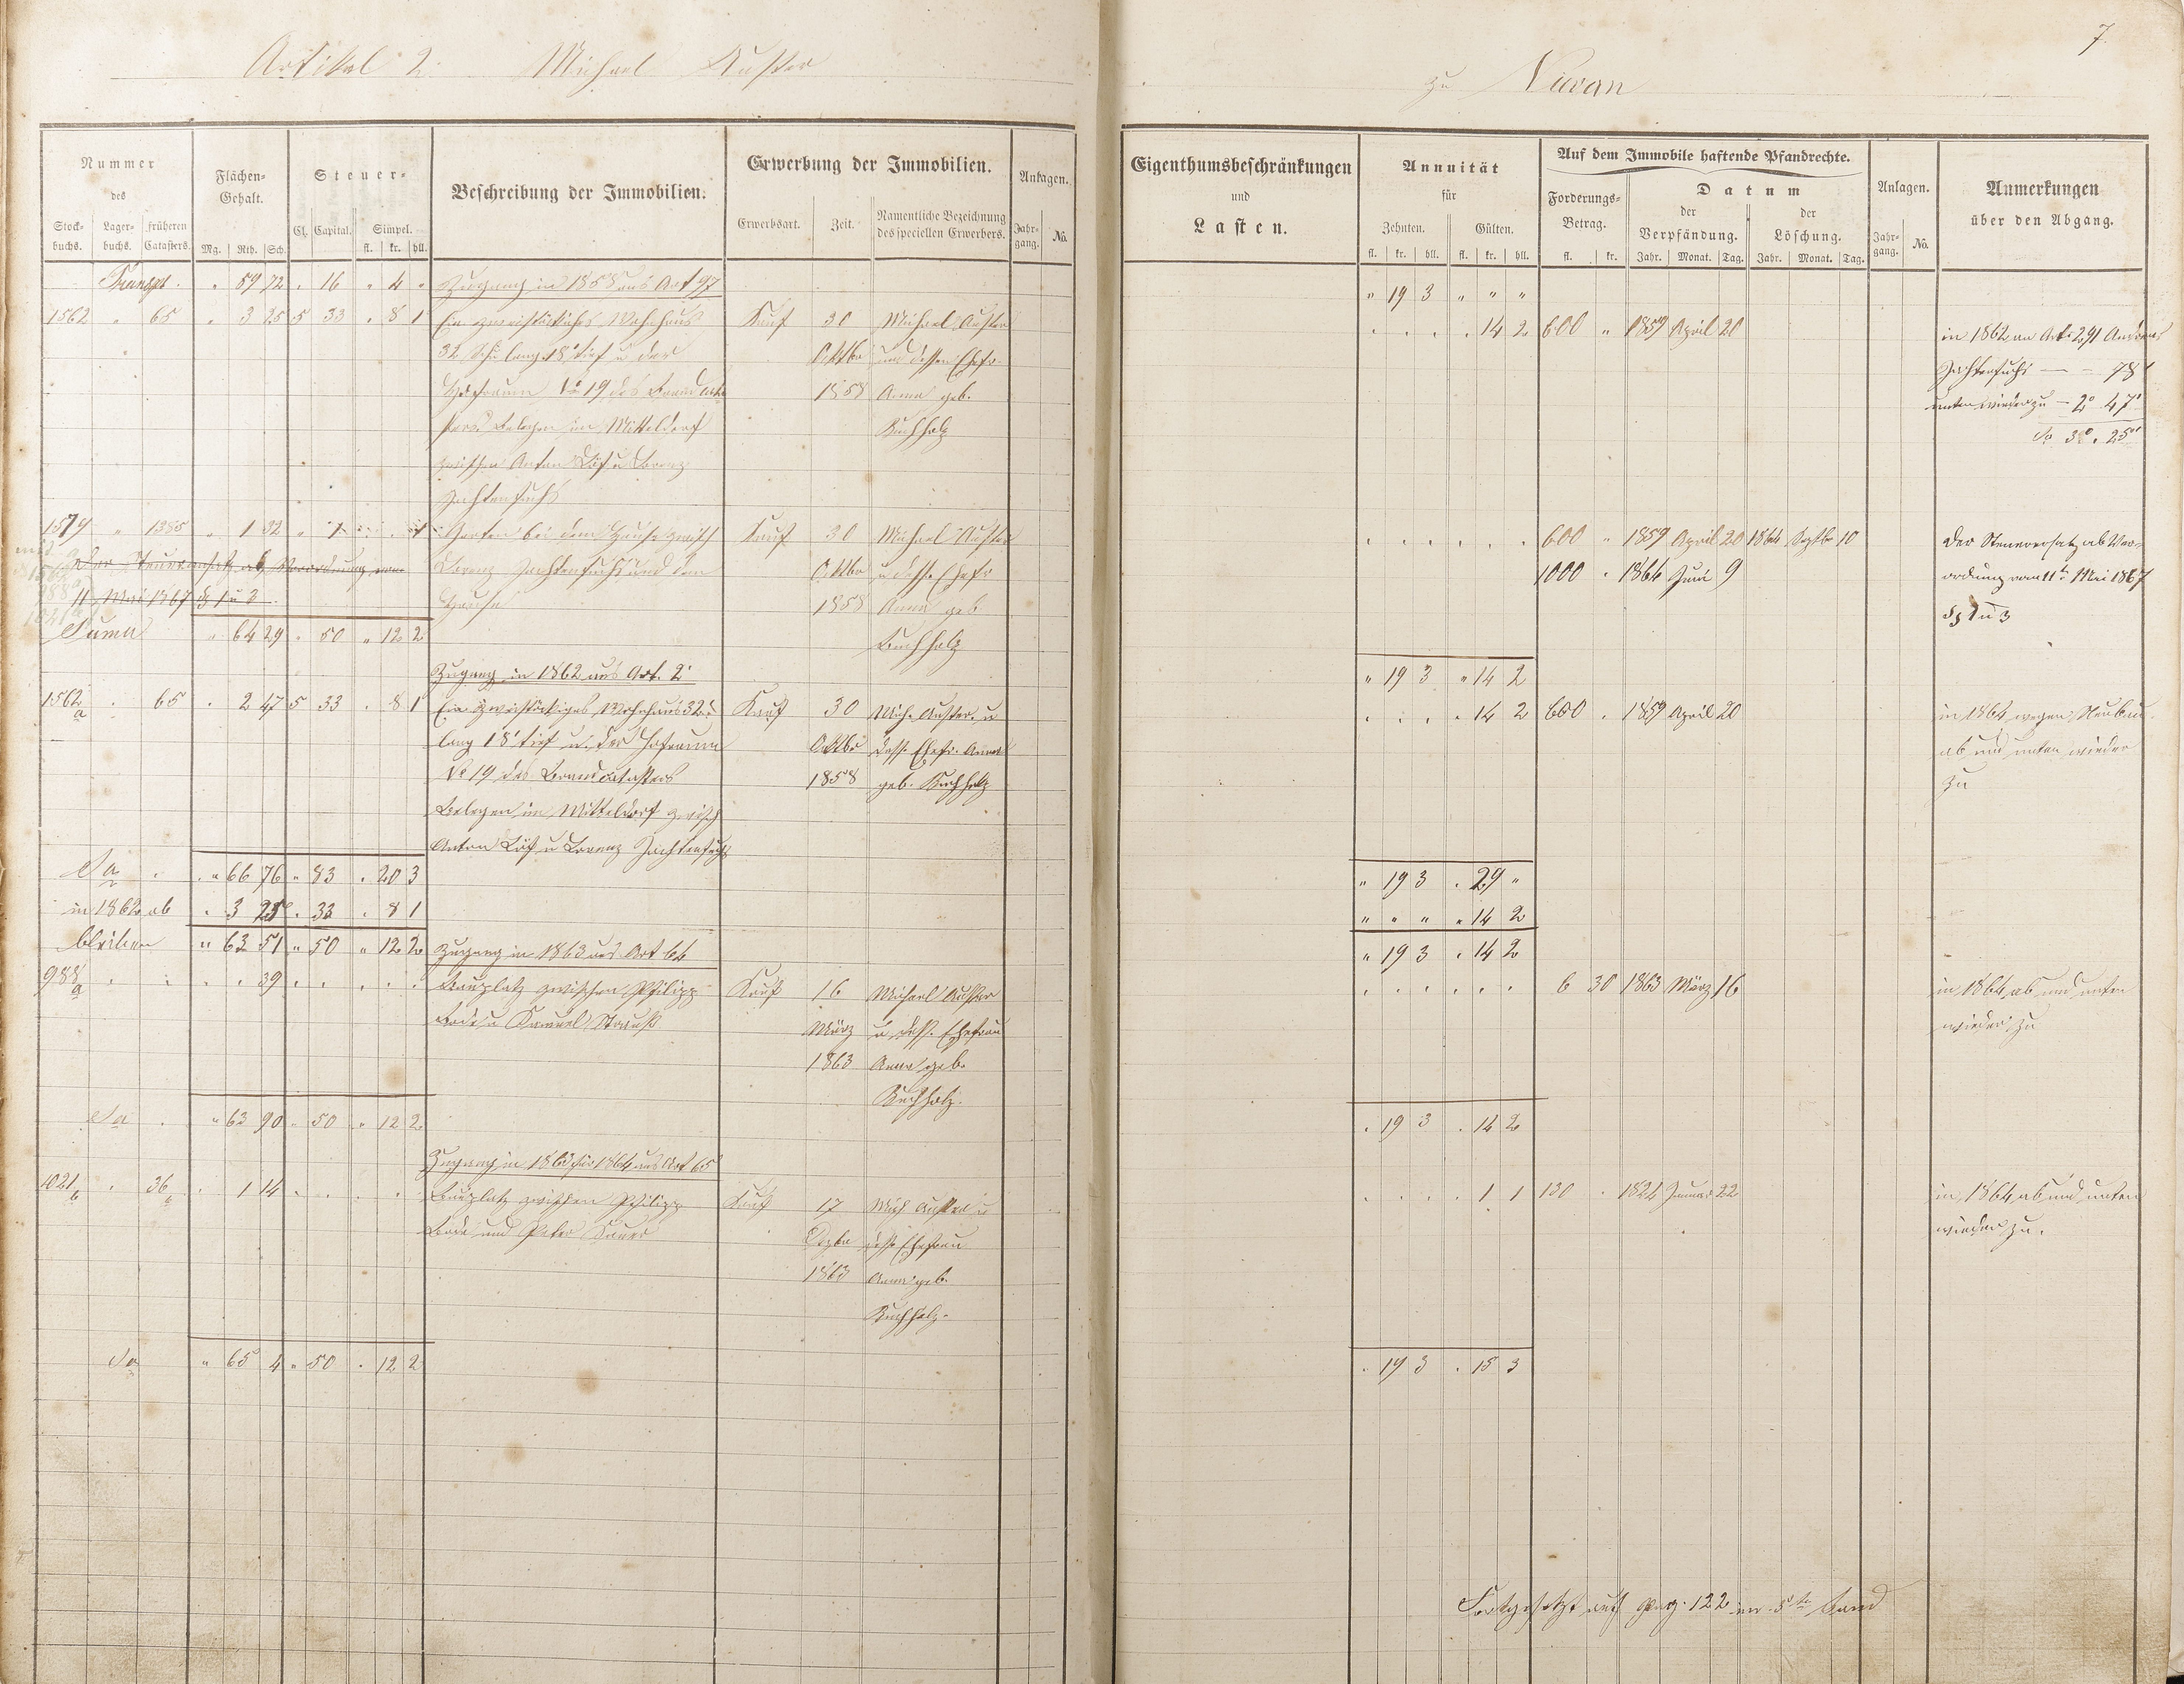 Artikel 2. Michael Auster
zu Nivan
7.
Nummer des
Stock-buchs. Lager-buchs. früheren Catasters.
Flächen-Gehalt.
Mg. Rth. Sch.
Steuer-
Cl. Capital. Simpel.
fl. kr. hll.
Beschreibung der Immobilien.
Erwerbung der Immobilien.
Erwerbsart. Zeit. Namentliche Bezeichnung des speciellen Erwerbers.
Anlagen.
Jahr-gang. No.
Eigenthumsbeschränkungen
und
Lasten.
Annuität
für
Zehnten. Gülten.
fl. kr. hll. fl. kr. hll.
Auf dem Immobile haftende Pfandrechte.
Forderungs-Betrag.
fl. kr.
Datum
der Verpfändung. der Löschung.
Jahr. Monat. Tag. Jahr. Monat. Tag.
Anlagen.
Jahr-gang. No.
Anmerkungen
über den Abgang.
Transpt. " 59 72 " 16 " 4 " Zugang in 1858 aus Art 97 " 19 3 " " "
1562 " 65 " 3 25 5 33 " 8 1 Ein zweistöckiches Wohnhaus Kauf 30 Michael Auster " 14 2 600 " 1859 April 20 in 1862 an Art. 291 Andreas
32 Sch. lang 18' tief u der Oktbr und dessen Ehefr
Hofraum No 19 des Brandcata 1858 Anna geb.
sters. Belegen im Mitteldorf Buchholz
zwischen Anton Löf u Lorenz
Zachtenfuchs — 78'
unten wieder zu — 2° 47'
Sa 3° 25'
1579 " 1385 " 1 32 " 1 Garten bei dem Hause zwisch Kauf 30 Michael Auster 600 " 1859 April 20 1864 Septbr 10 Der Steuerersatz ab Ver-
Der Steuerersatz ab Verordnung vom Lorenz Zachtenfuchs und dem Oktbr u dessn Ehefr 1000 " 1864 Juni 9 ordnung vom 11t. Mai 1867
11 Mai 1867 § 1 u 3 Hause 1858 Anna geb. § 1 u 3
Suma " 64 29 " 50 " 12 2 Buchholz
Zugang in 1862 aus Art. 2. " 19 3 " 14 2
1562a " 65 " 2 47 5 33 " 8 1 Ein zweistöckiges Wohnhaus 32' Kauf 30 Mich. Auster. u " 14 2 600 " 1859 April 20 in 1864 wegen Neubau
lang 18' tief u. der Hofraum Oktbr dess. Ehefr. Anna ab und unten wieder
No 19 des Brandcatasters 1858 geb. Buchholz zu
Belegen im Mitteldorf zwisch
Anton Löf u Lorenz Zachtenfuchs
Sa " 66 76 " 83 " 20 3 " 19 3 " 29 "
in 1862 ab " 3 25 " 33 " 8 1 " " " " 14 2
bleiben " 63 51 " 50 " 12 2 Zugang in 1863 aus Art 64 " 19 3 " 14 2
988a " " 39 Bauplatz zwischen Philipp Kauf 16 Michael Auster 6 30 1863 März 16 in 1864 ab und unten
Bode u Samuel Strauß März u dess. Ehefrau wieder zu
1863 Anna geb.
Buchholz.
Sa " 63 90 " 50 " 12 2 " 19 3 " 14 2
Zugang in 1863 für 1864 aus Art 65
1021b " 36b " 1 14 Bauplatz zwischen Philipp Kauf 17 Mich Auster u " 1 1 130 " 1824 Januar 22 in 1864 ab und unten
Bode und Peter Dezbr dess Ehefrau wieder zu.
1863 Anna geb.
Buchholz.
Sa " 65 4 " 50 " 12 2 " 19 3 " 15 3
Fortgesetzt auf pag. 122 im 5te Band